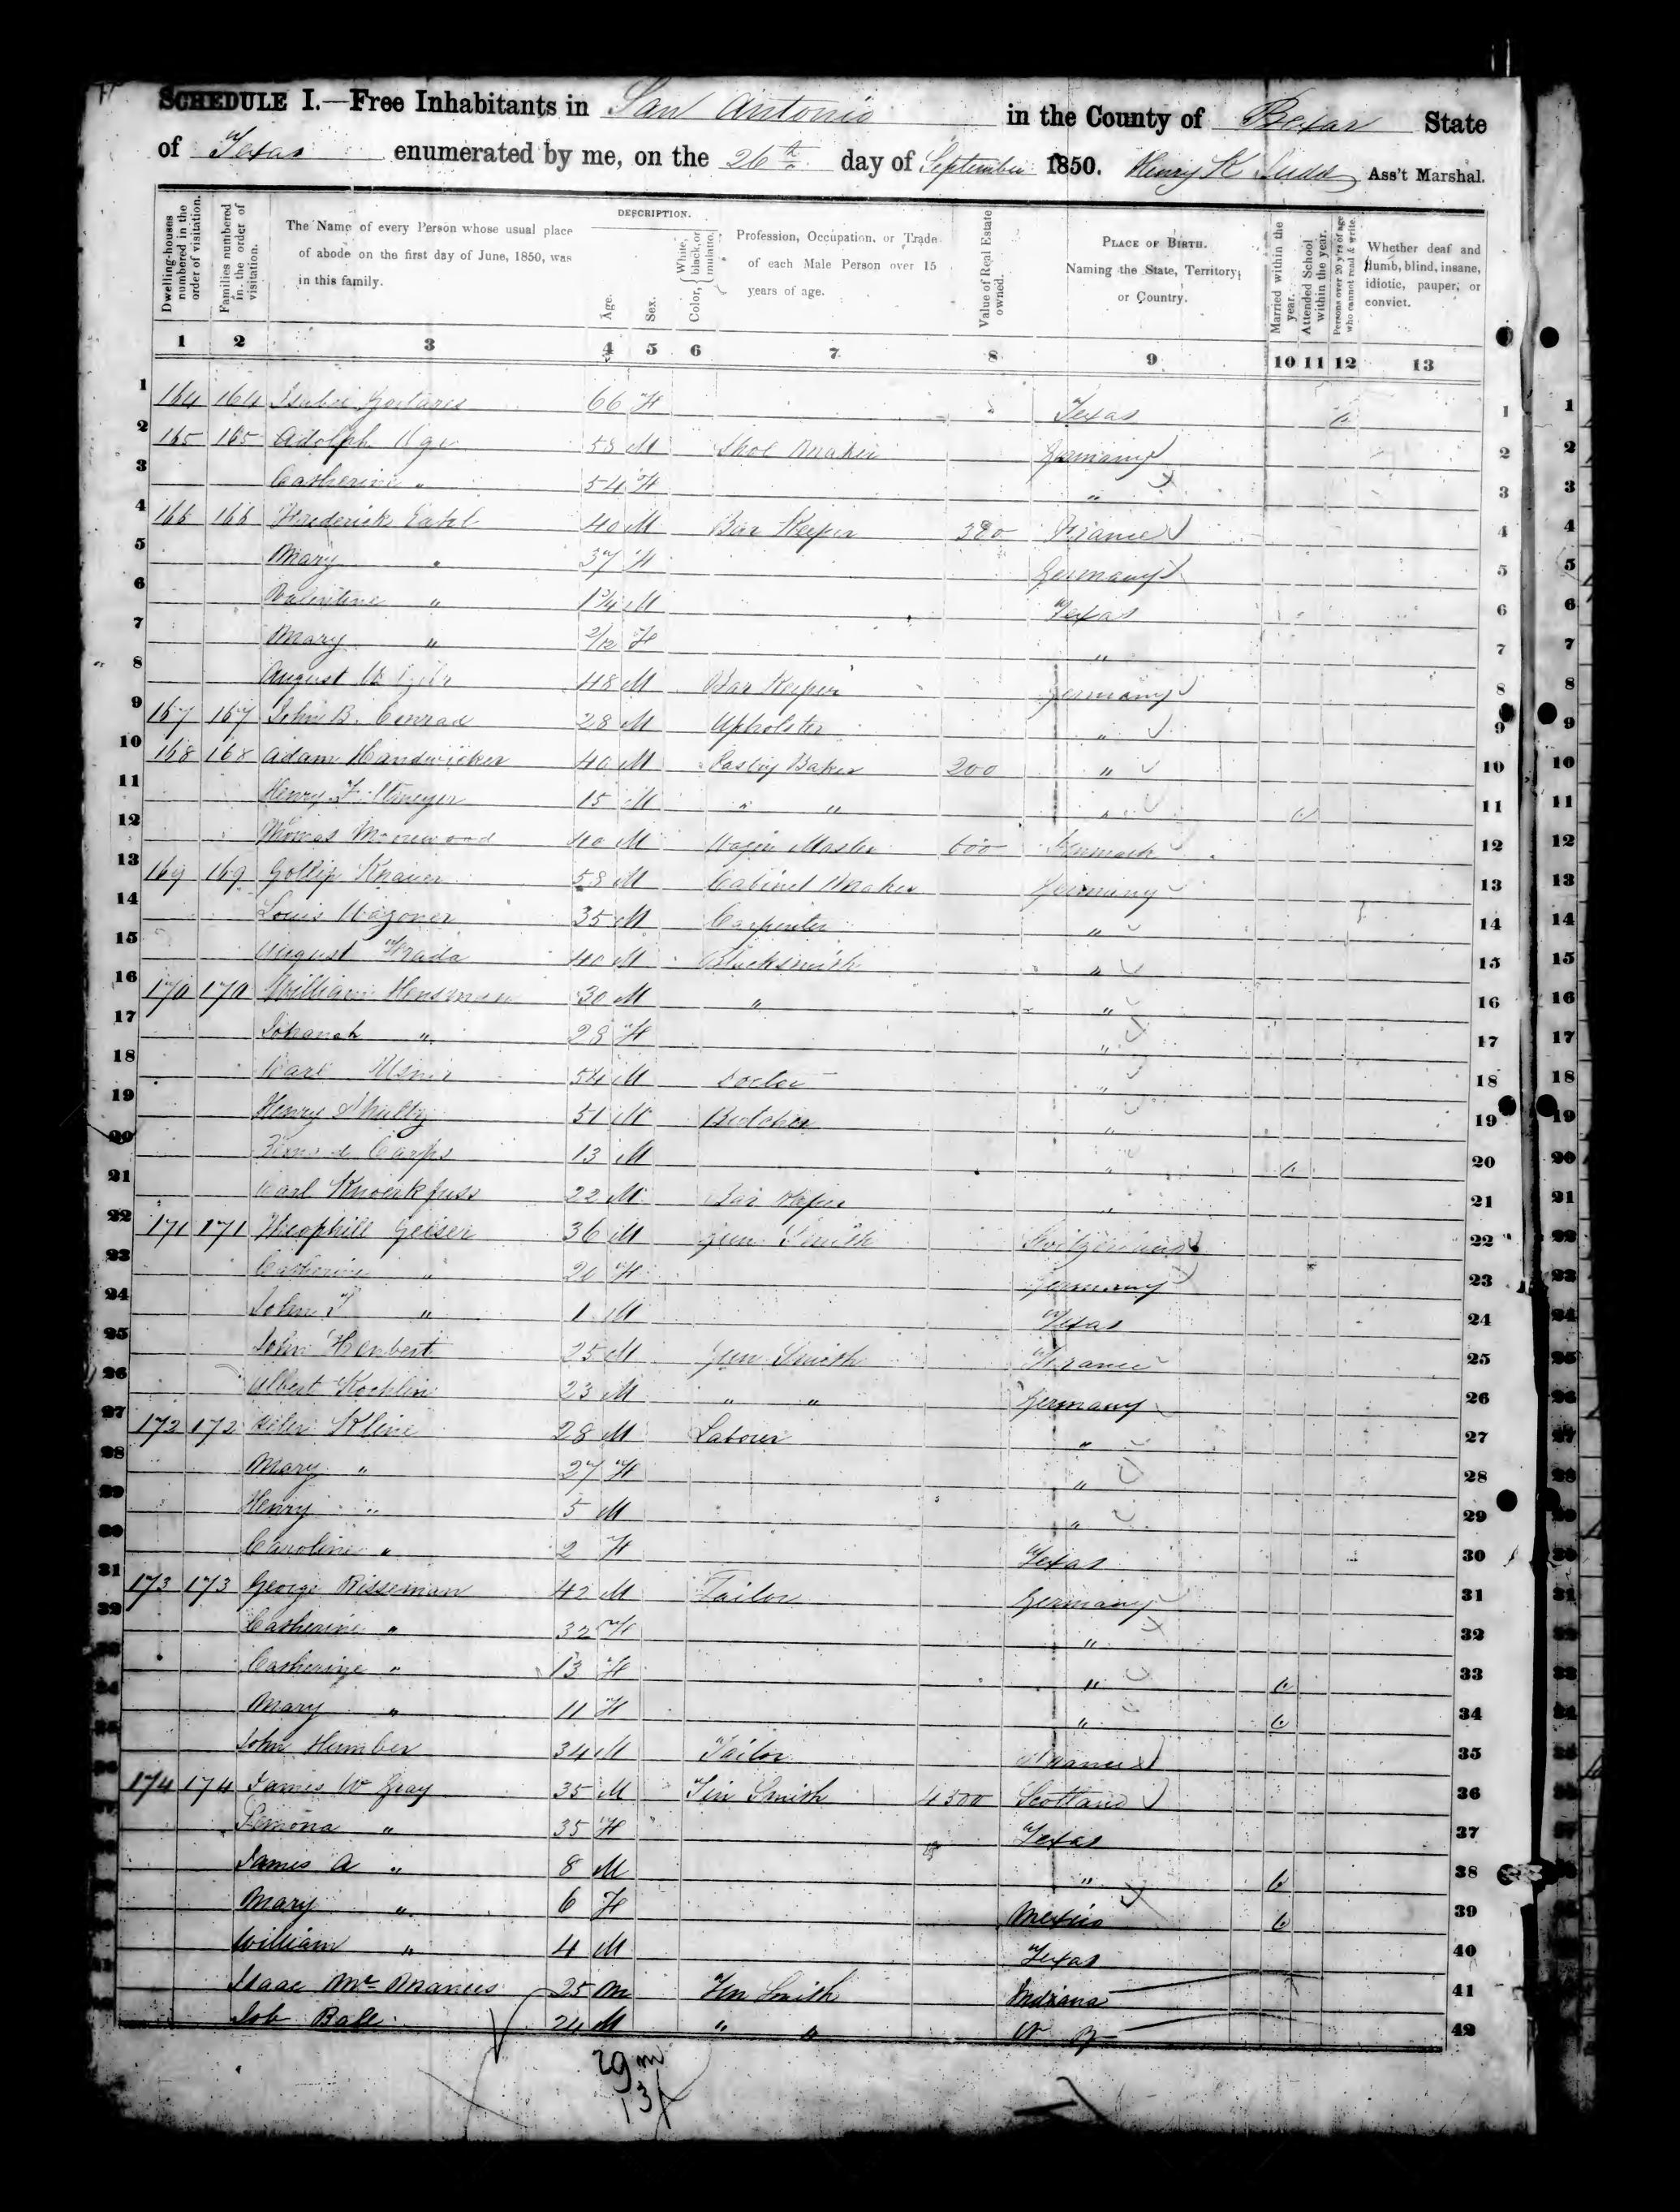 SCHEDULE I.—Free Inhabitants in San Antonio in the County of Bexar State
of Texas enumerated by me, on the 26th day of September 1850. Henry K Judd Ass't Marshal.
Dwelling-houses numbered in the order of visitation.
Families numbered in the order of visitation.
The Name of every Person whose usual place of abode on the first day of June, 1850, was in this family.
DESCRIPTION.
Age.
Sex.
Color, { White, black, or mulatto.
Profession, Occupation, or Trade of each Male Person over 15 years of age.
Value of Real Estate owned.
PLACE OF BIRTH. Naming the State, Territory, or Country.
Married within the year.
Attended School within the year.
Persons over 20 y'rs of age who cannot read & write.
Whether deaf and dumb, blind, insane, idiotic, pauper, or convict.
1 2 3 4 5 6 7 8 9 10 11 12 13
1 164 164 66 F Texas 1
2 165 165 Adolph 58 M Shoe Maker Germany 2
3 Catherine " 54 F " 3
4 166 166 Frederick 40 M Bar Keeper France 4
5 Mary " 37 F Germany 5
6 Valentine " M Texas 6
7 Mary " 2/12 F " 7
8 August 48 M Bar Keeper Germany 8
9 167 167 John B. Conrad 28 M Upholster " 9
10 168 168 Adam Handwicker 40 M Baker 200 " 10
11 Henry 15 M " " " 11
12 Thomas 40 M Master 600 Denmark 12
13 169 169 Gottip Knauer 58 M Cabinet Maker Germany 13
14 Louis Wagoner 35 M Carpenter " 14
15 August 40 M Blacksmith " 15
16 170 170 William Hensman 30 M " " 16
17 Johanah " 28 F " 17
18 Carl 54 M Docter " 18
19 Henry Shultz 51 M Butcher " 19
20 13 M " 20
21 Carl 22 M Bar Keper " 21
22 171 171 Theophill Geiser 36 M Gun Smith Switzerland 22
23 Catherine " 20 F Germany 23
24 John T " 1 M Texas 24
25 John Henbert 25 M Gun Smith France 25
26 Albert Kochlin 23 M " " Germany 26
27 172 172 Peter Kline 28 M Labour " 27
28 Mary " 27 F " 28
29 Henry " 5 M " 29
30 Caroline " 2 F Texas 30
31 173 173 George Risseman 42 M Tailor Germany 31
32 Catherine " 32 F " 32
33 Catherine " 13 F " 33
34 Mary " 11 F " 34
35 John Humber 34 M Tailor France 35
36 174 174 James W Gray 35 M Tin Smith 4500 Scotland 36
37 " 35 F Texas 37
38 James A " 8 M " 38
39 Mary " 6 F Mexico 39
40 William " 4 M Texas 40
41 Isaac Mc Manus 25 M Tin Smith Indiana 41
42 Job Ball 24 M " " 42
29 m
13 f